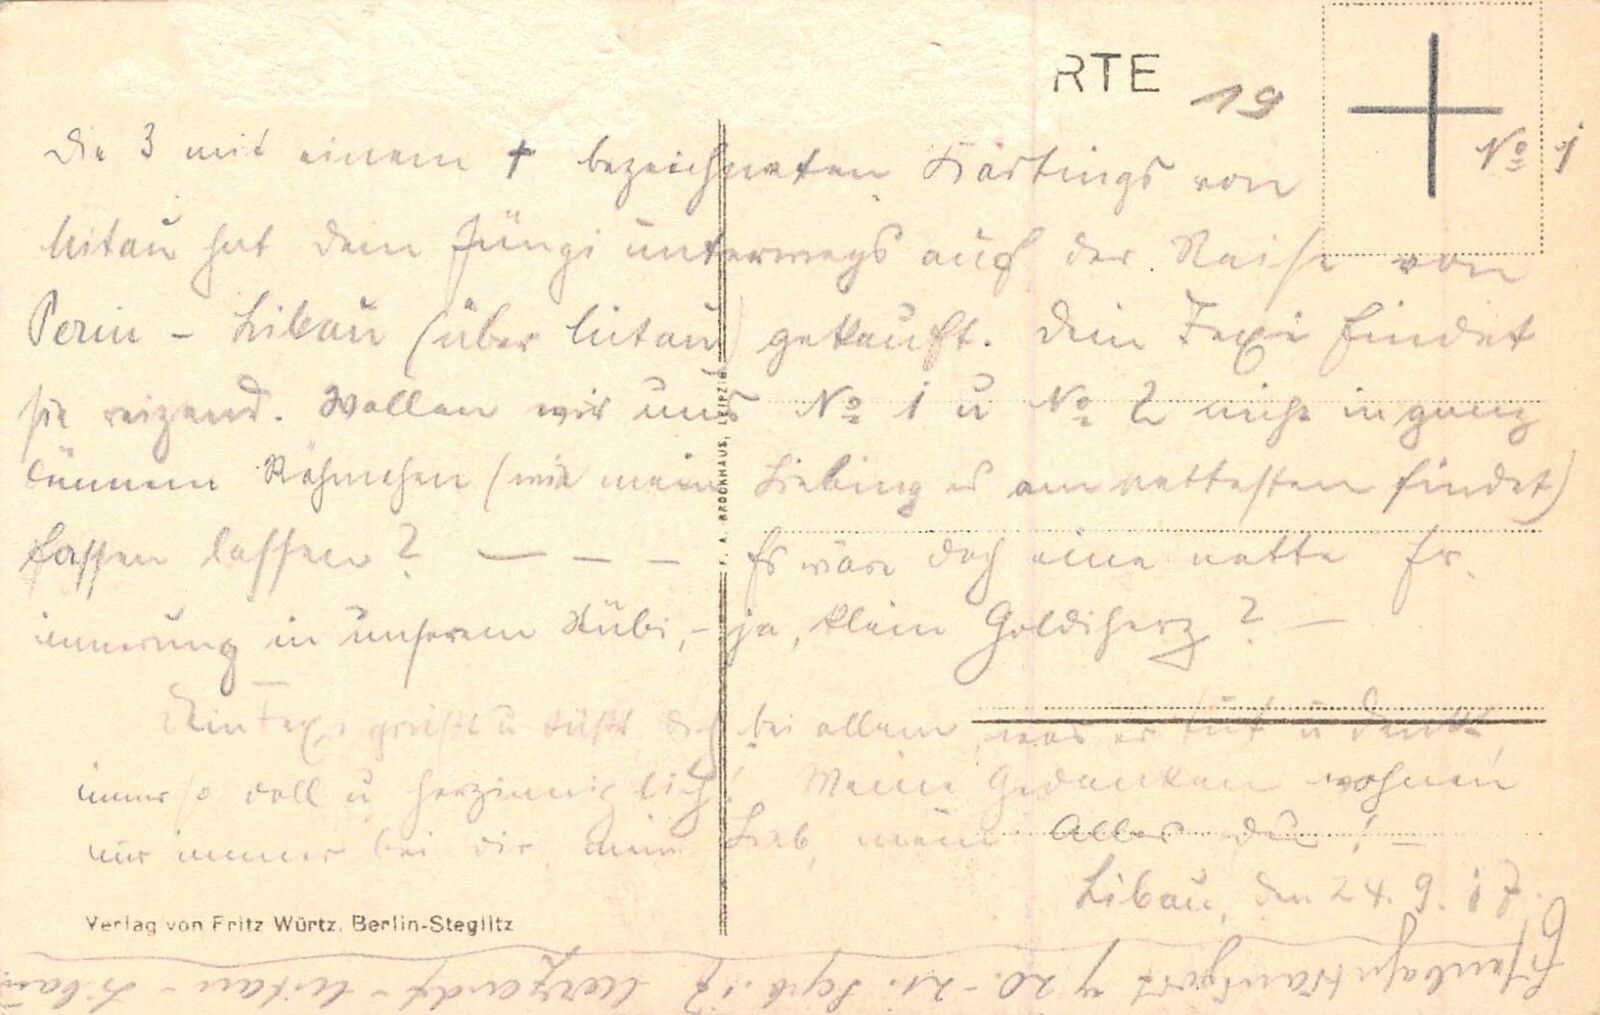 RTE 19
N° 1
Die 3 mit einem + bezeichneten Kärtings von
Mitau hat dein Jüngi unterwegs auf der Reise von
– Libau (über Mitau) gekauft. Dein Fexi findet
sie reizend. Wollen wir uns N° 1 u N° 2 nicht in ganz
dünnem Rähmchen (wie mein Liebing es am nettesten findet)
fassen lassen? — – – Es wäre doch eine nette Er-
innerung in unserem Stübi, – ja, klein Goldiherz? –
Dein Fexi grüßt u küßt dich bei allem, was er tut u denkt,
immer so voll u herzinniglich! Meine Gedanken wohnen
nur immer bei dir, mein Lieb, mein Alles du! –
Libau, den 24.9.17.
Verlag von Fritz Würtz, Berlin-Steglitz
F. A. BROCKHAUS, LEIPZIG
Eisenbahntransport 20.-21. Sept. 17 – Mitau – Libau